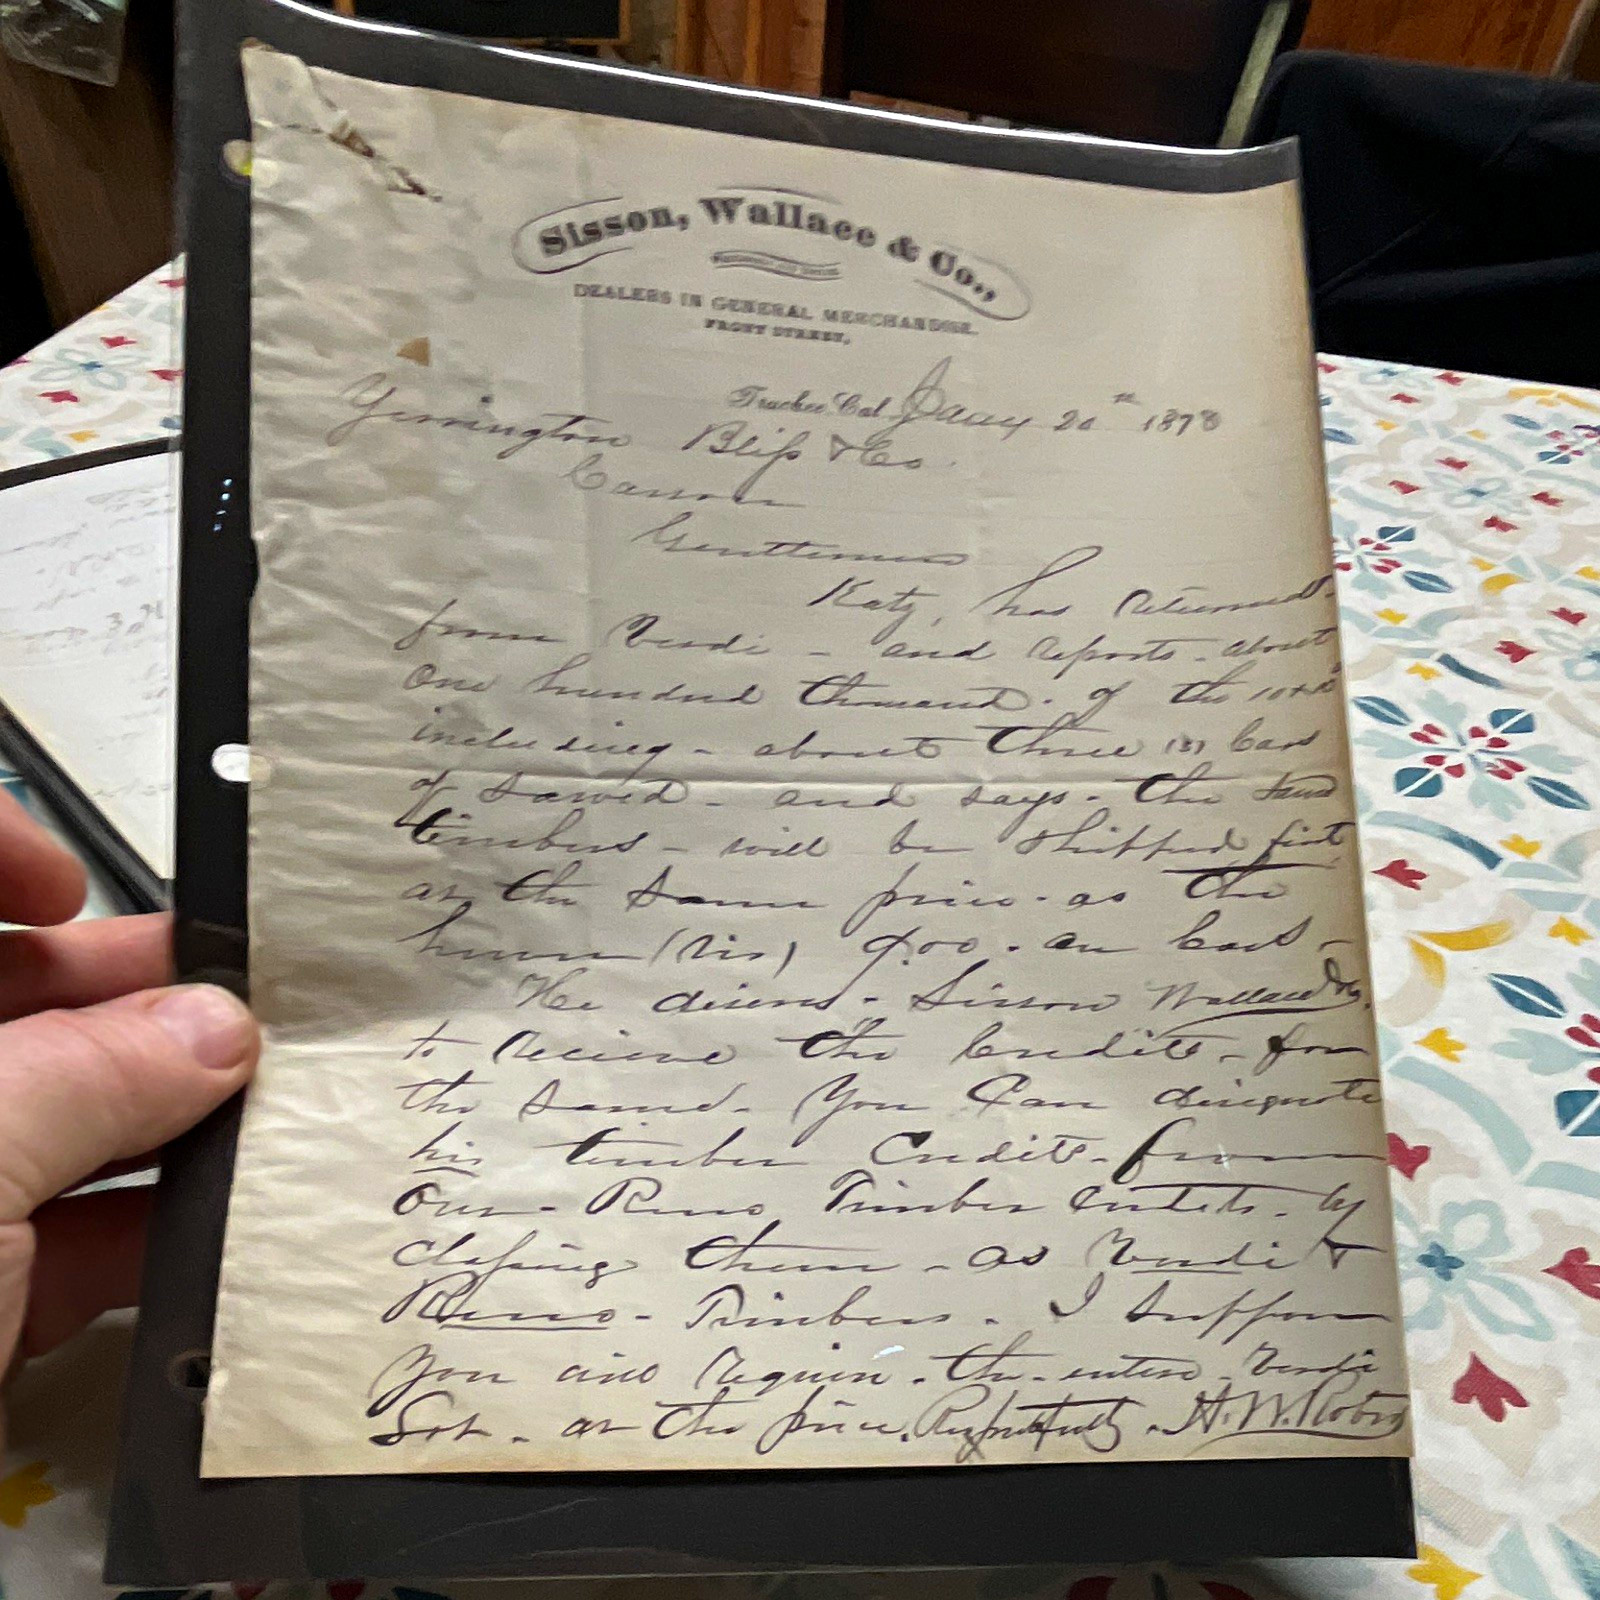 Sisson, Wallace & Co.,
DEALERS IN GENERAL MERCHANDISE.
FRONT STREET,
Truckee, Cal. Jany 20th 1878
Yerrington Bliss & Co
Carson
Gentlemen
Katz, has returned
from Verdi - and reports - about
One hundred thousand - of the 10x10
including - about three (3) Cars
of sawed - and says - the sawed
timbers - will be shipped first,
at the same price - as the
hewn (viz) 9.00 - on Cars -
He desires - Sisson Wallace & Co.
to receive the Credits - for
the same - You Can designate
his timber Credits - from
Our - Reno Timber Credits - by
classing them - as Verdi &
Reno - Timbers - I suppose
You will require - the - entire - Verdi
Lot - at the price. Respectfully - H. W. Robts